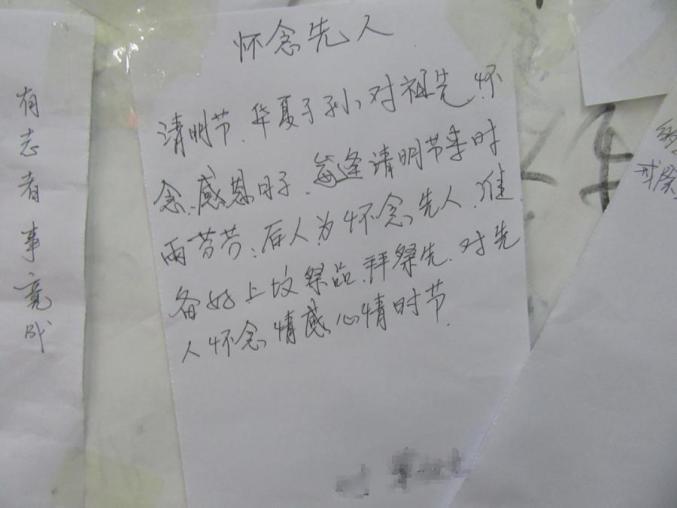 怀念先人
清明节、华夏子孙、对祖先怀
念、感恩日子、每逢清明节季时
雨芬芬、后人为怀念先人、准
备好上坟祭品、拜祭先、对先
人怀念、情感心情时节.
有志者事竟成